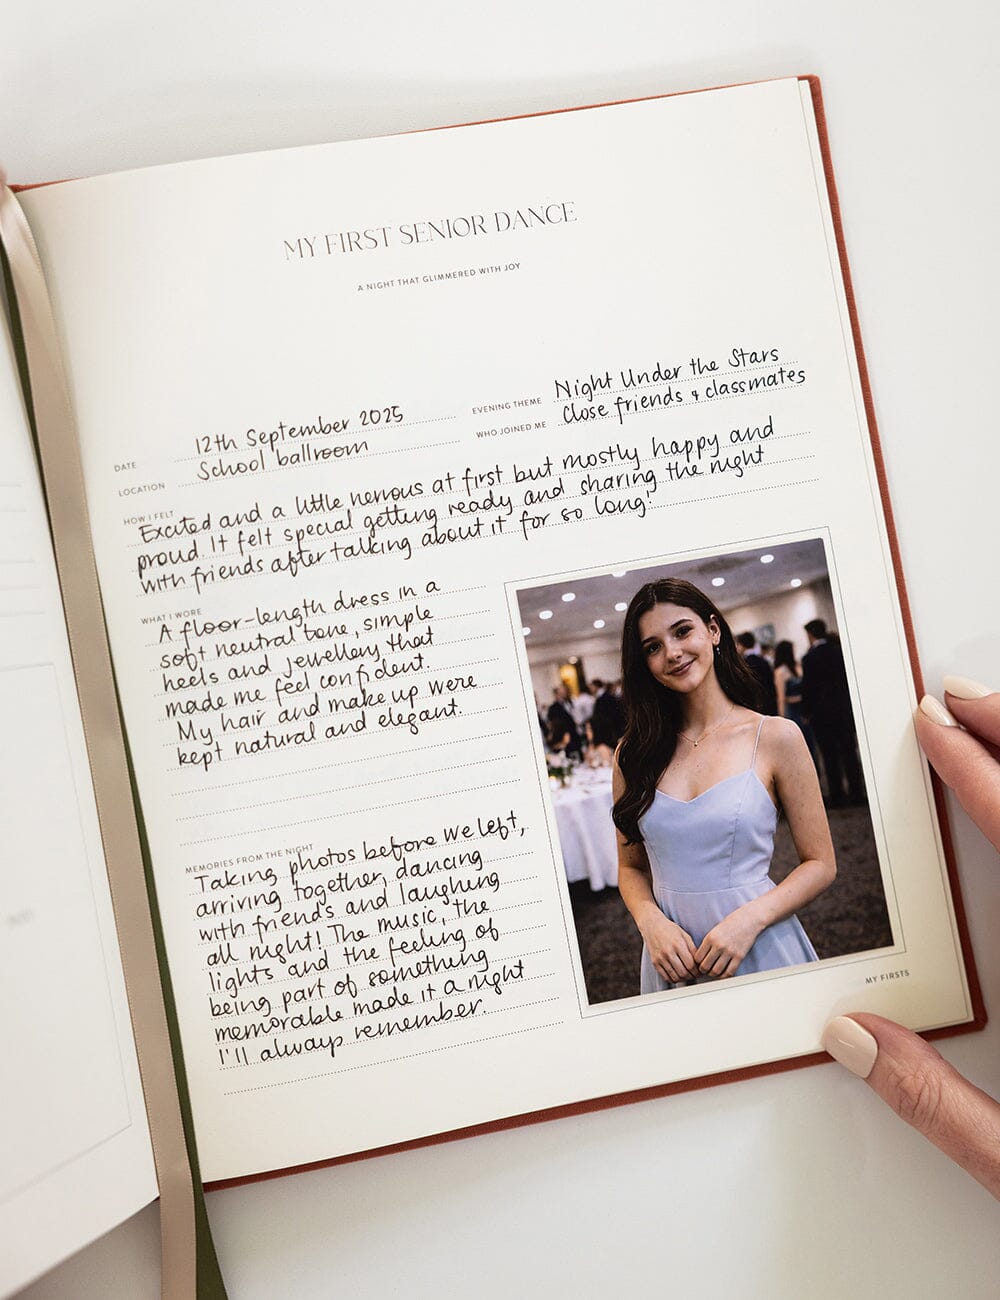 MY FIRST SENIOR DANCE
A NIGHT THAT GLIMMERED WITH JOY
DATE 12th September 2025
LOCATION School ballroom
EVENING THEME Night Under the Stars
WHO JOINED ME Close friends & classmates
HOW I FELT
Excited and a little nervous at first but mostly happy and
proud. It felt special getting ready and sharing the night
with friends after talking about it for so long!
WHAT I WORE
A floor-length dress in a
soft neutral tone, simple
heels and jewellery that
made me feel confident.
My hair and make up were
kept natural and elegant.
MEMORIES FROM THE NIGHT
Taking photos before we left,
arriving together, dancing
with friends and laughing
all night! The music, the
lights and the feeling of
being part of something
memorable made it a night
I'll always remember.
MY FIRSTS